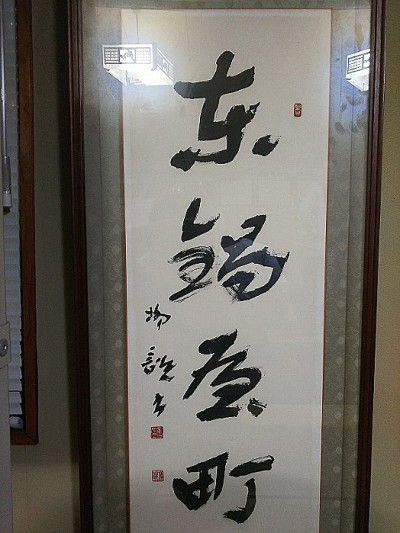 东鍋屋町